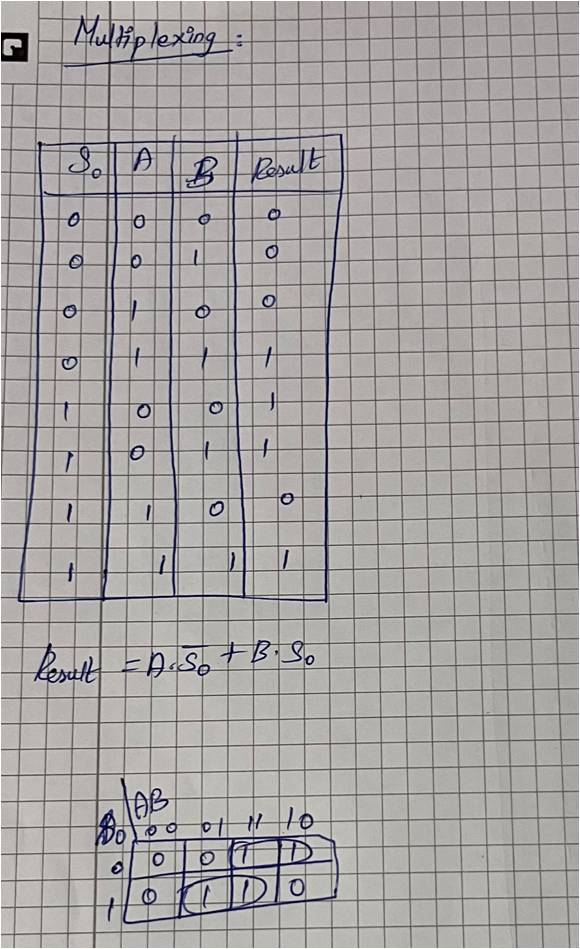 Multiplexing :
S₀ A B Result
0 0 0 0
0 0 1 0
0 1 0 0
0 1 1 1
1 0 0 1
1 0 1 1
1 1 0 0
1 1 1 1
Result = A.S̅₀ + B.S₀
AB
S₀ 00 01 11 10
0 0 0 1 1
1 0 1 1 0